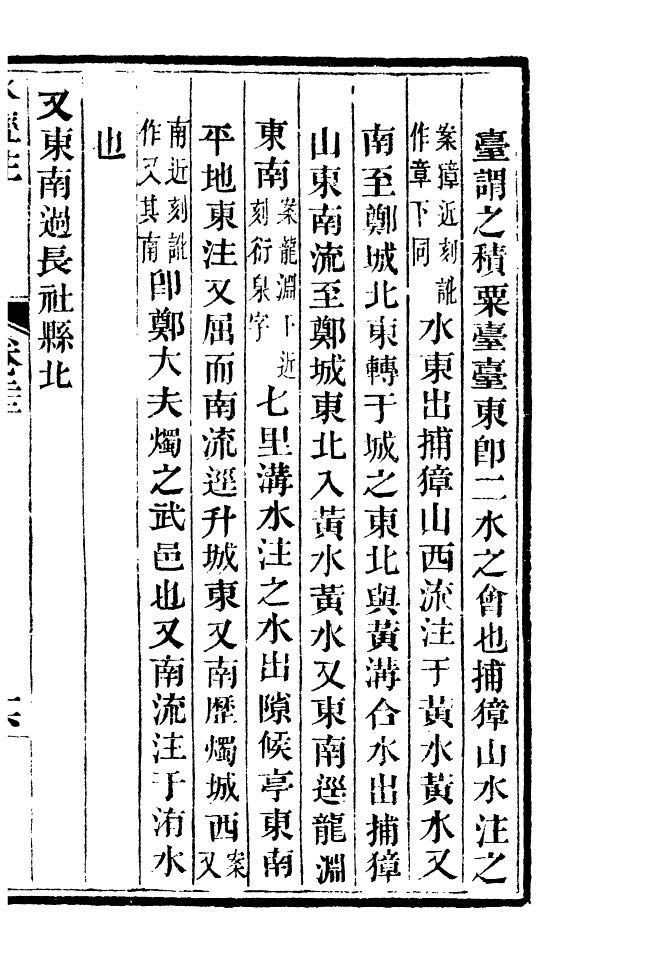 臺謂之積粟臺臺東卽二水之會也捕獐山水注之
案獐近刻訛作章下同水東出捕獐山西流注于黃水黃水又
南至鄭城北東轉于城之東北與黃溝合水出捕獐
山東南流至鄭城東北入黃水黃水又東南逕龍淵
東南案龍淵下近刻衍泉字七里溝水注之水出隙候亭東南
平地東注又屈而南流逕升城東又南歷燭城西案又
南近刻訛作又其南卽鄭大夫燭之武邑也又南流注于洧水
也
又東南過長社縣北